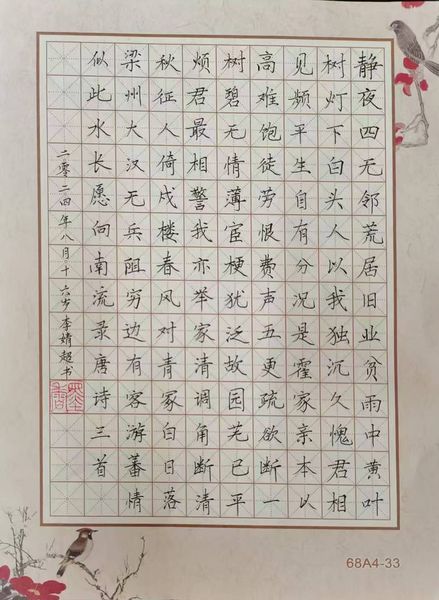 静夜四无邻荒居旧业贫雨中黄叶
树灯下白头人以我独沉久愧君相
见频平生自有分况是霍家亲本以
高难饱徒劳恨费声五更疏欲断一
树碧无情薄宦梗犹泛故园芜已平
烦君最相警我亦举家清调角断清
秋征人倚戍楼春风对青冢白日落
梁州大汉无兵阻穷边有客游蕃情
似此水长愿向南流录唐诗三首
二零二四年八月十六岁李婧超书
68A4-33